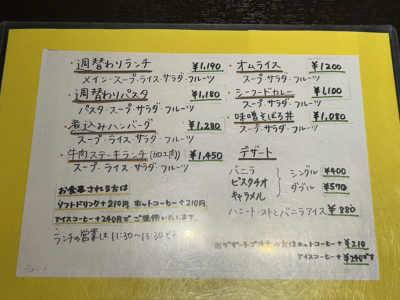 ・週替わりランチ ¥1,190
メイン・スープ・ライス・サラダ・フルーツ
・週替わりパスタ ¥1,180
パスタ・スープ・サラダ・フルーツ
・煮込みハンバーグ ¥1,280
スープ・ライス・サラダ・フルーツ
・牛肉ステーキランチ(加工肉) ¥1,450
スープ・ライス・サラダ・フルーツ
お食事される方は
ソフトドリンク+210円 ホットコーヒー+210円
アイスコーヒー+240円で ご提供いたします。
ランチの営業は 11:30〜13:30
・オムライス ¥1200
スープ・サラダ・フルーツ
・シーフードカレー ¥1,100
スープ・サラダ・フルーツ
・味噌そぼろ丼 ¥1,080
スープ・サラダ・フルーツ
デザート
バニラ
ピスタチオ
キャラメル
シングル ¥400
ダブル ¥570
ハニートーストとバニラアイス ¥880
方はホットコーヒー+¥210
アイスコーヒー+¥240です